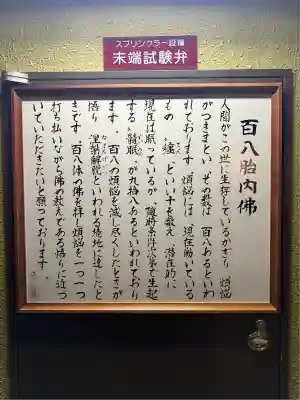 スプリンクラー設備
末端試験弁
百八胎内佛
人間がこの世に生存しているかぎり 煩悩
がつきまとい その数は 百八あるといわ
れております 煩悩には、現在動いている
もの「纏」といい十を数え 潜在的に
現在は眠っているが、随時条件次第で生起
する「随眠」が九拾八あるといわれており
ます。百八の煩悩を滅し尽くしたときが
悟り 涅槃解脱といわれる境地に達したと
きです。百八体の佛を拝し煩悩を一つ一つ
打ち払いながら佛の教えである悟りに近つ
いていただきたいと願っております。